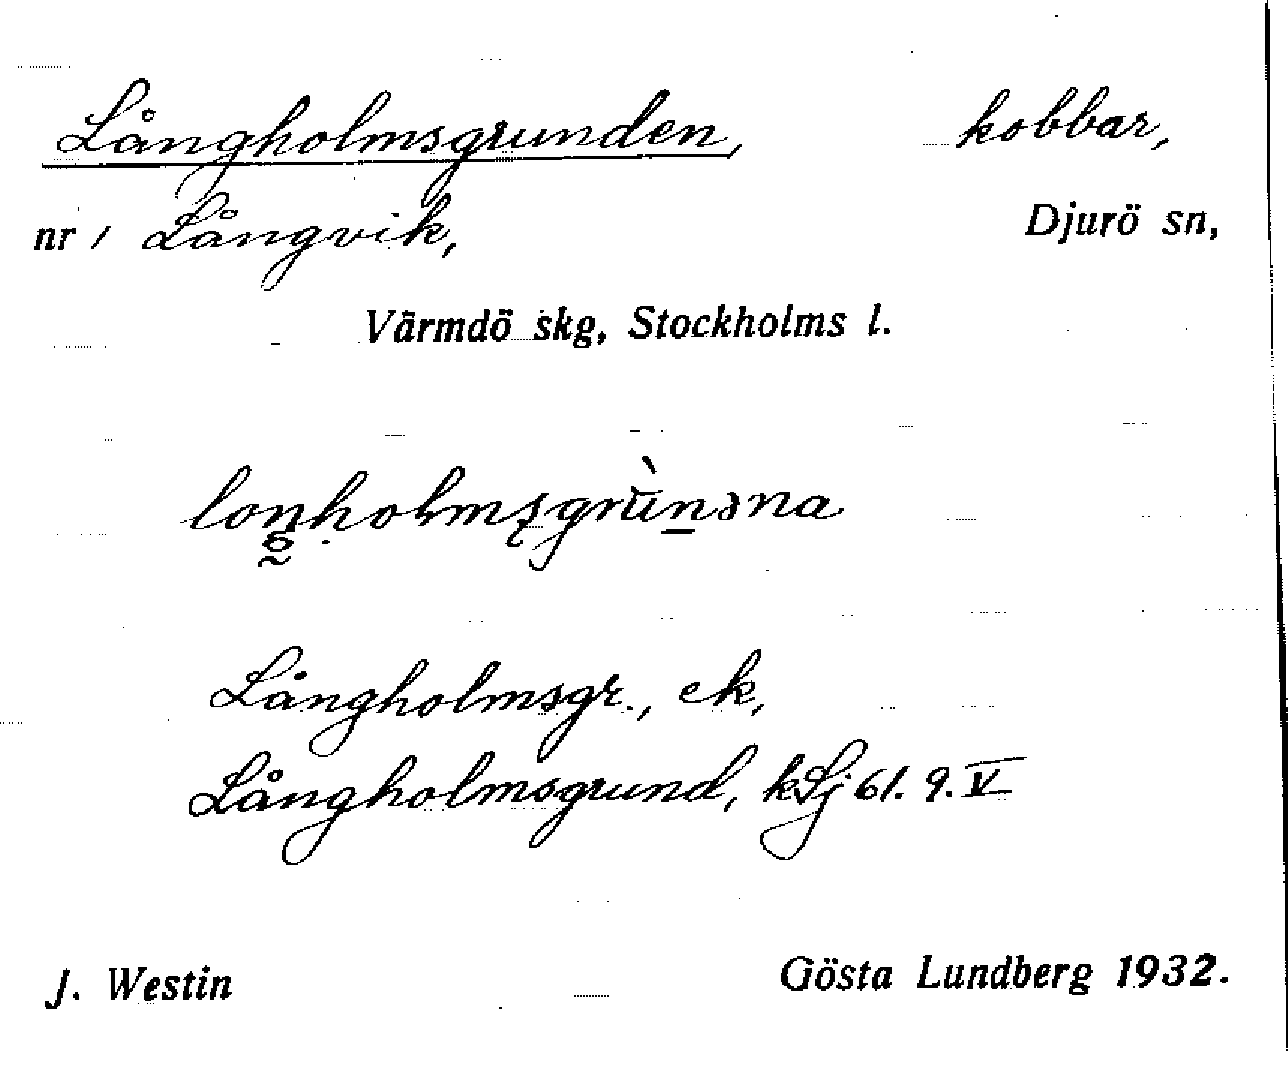 Långholmsgrunden, kobbar,
nr 1 Långvik, Djurö sn,
Värmdö skg, Stockholms l.
Långholmsgr., ek,
Långholmsgrund, kSj 61. 9. V
J. Westin Gösta Lundberg 1932.